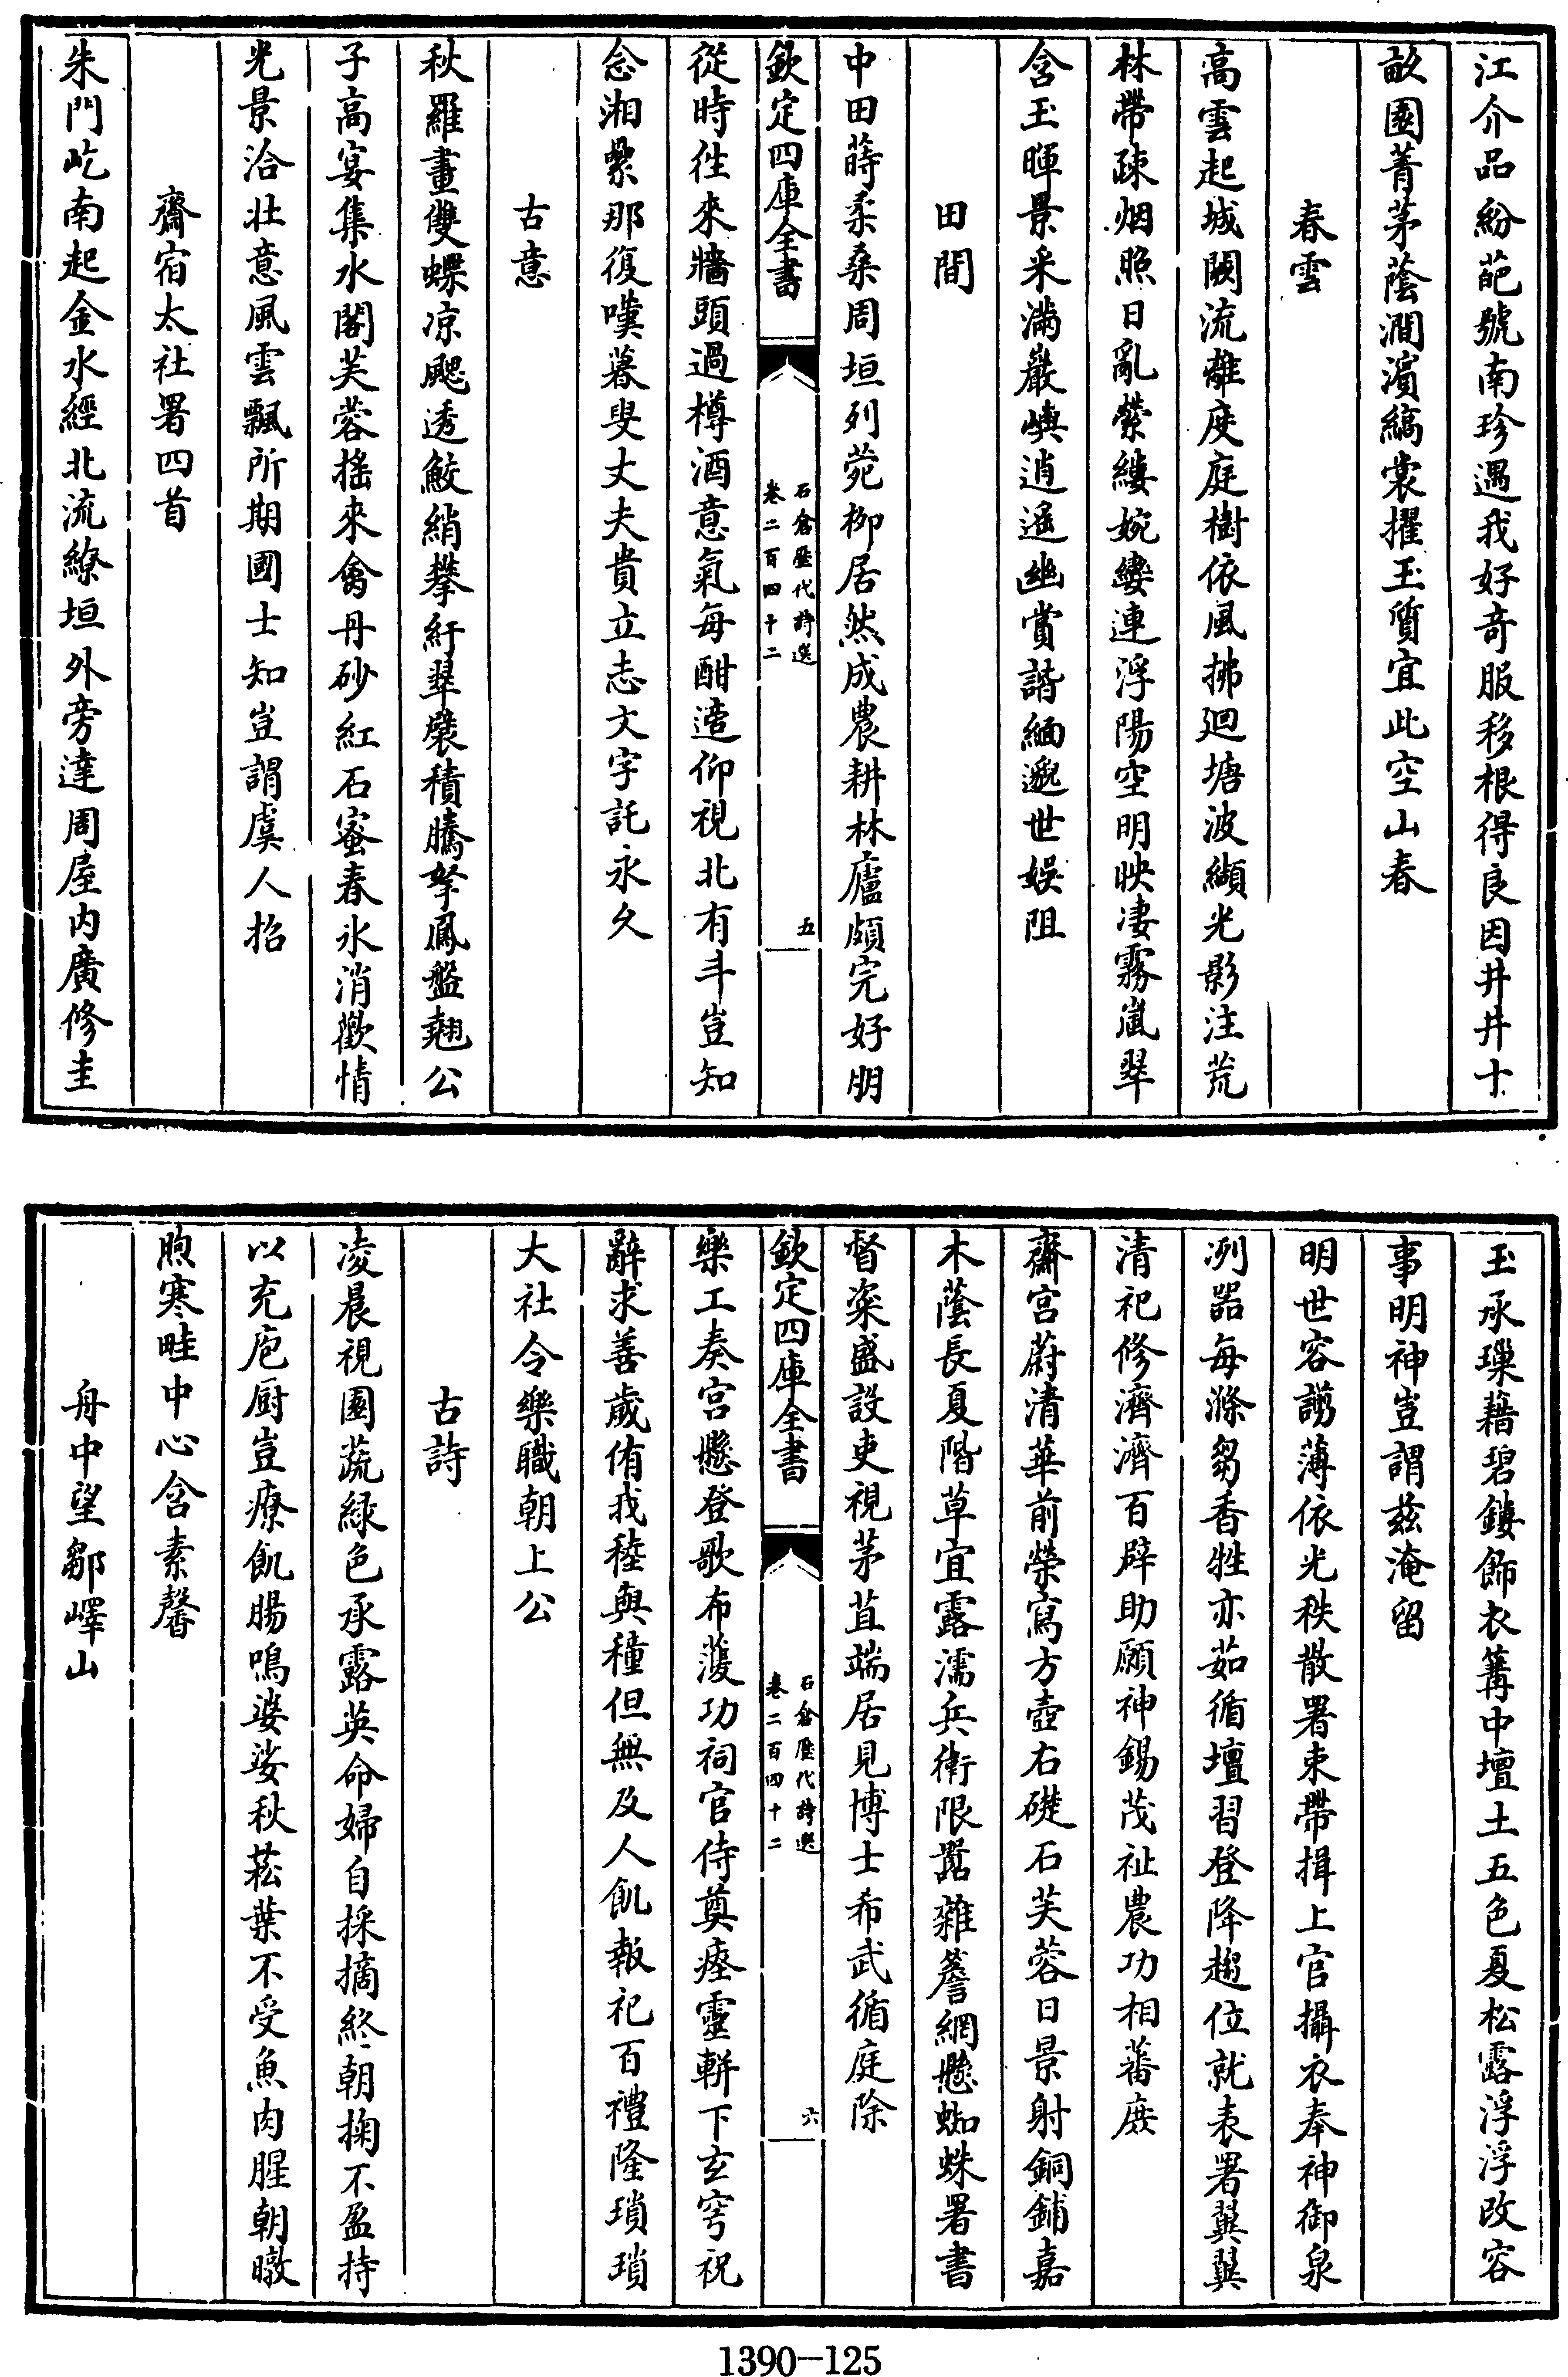 江介品紛葩號南珍遇我好奇服移根得良因井井十
畝園菁茅蔭澗濱縞裳擢玉質宜此空山春
春雲
高雲起城闕流離度庭樹依風拂廻塘波纈光影注荒
林帶疎烟照日亂縈縷婉孌連浮陽空明映淒霧嵐翠
含玉暉景采滿巖嶼逍遥幽賞諧緬邈世娱阻
田間
中田蒔柔桑周垣列菀栁居然成農耕林廬頗完好朋
欽定四庫全書
石倉歷代詩選
卷二百四十二
五
從時徃來牆頭過樽酒意氣每酣適仰視北有斗豈知
念湘纍那復嘆暮叟丈夫貴立志文字託永久
古意
秋羅畫雙蝶凉颸透鮫綃攀紆翠襞積騰拏鳳盤翹公
子高宴集水閣芙蓉揺來禽丹砂紅石蜜春氷消歡情
光景洽壯意風雲飄所期國士知豈謂虞人招
齋宿太社署四首
朱門屹南起金水經北流繚垣外旁達周屋内廣修圭
玉承璅藉碧鏤飾衣篝中壇土五色夏松露浮浮改容
事明神豈謂兹淹留
明世容謭薄依光秩散署束帶揖上官攝衣奉神御泉
冽器每滌芻香牲亦茹循壇習登降趨位就表署翼翼
清祀修濟濟百辟助願神錫茂祉農功相蕃庶
齋宫蔚清華前榮寫方壺右礎石芙蓉日景射銅鋪嘉
木蔭長夏階草宜露濡兵衛限嚣雜簷網懸蜘蛛署書
督粢盛設吏視茅苴端居見博士希武循庭除
欽定四庫全書
石倉歷代詩選
卷二百四十二
六
樂工奏宫懸登歌布濩功祠官侍奠瘞靈軿下玄穹祝
辭求善歲侑我稑與穜但無及人飢報祀百禮隆瑣瑣
大社令樂職朝上公
古詩
凌晨視園蔬綠色承露英命婦自採摘終朝掬不盈持
以充庖厨豈療飢腸鳴婆娑秋菘葉不受魚肉腥朝暾
煦寒畦中心含素馨
舟中望鄒嶧山
1390-125